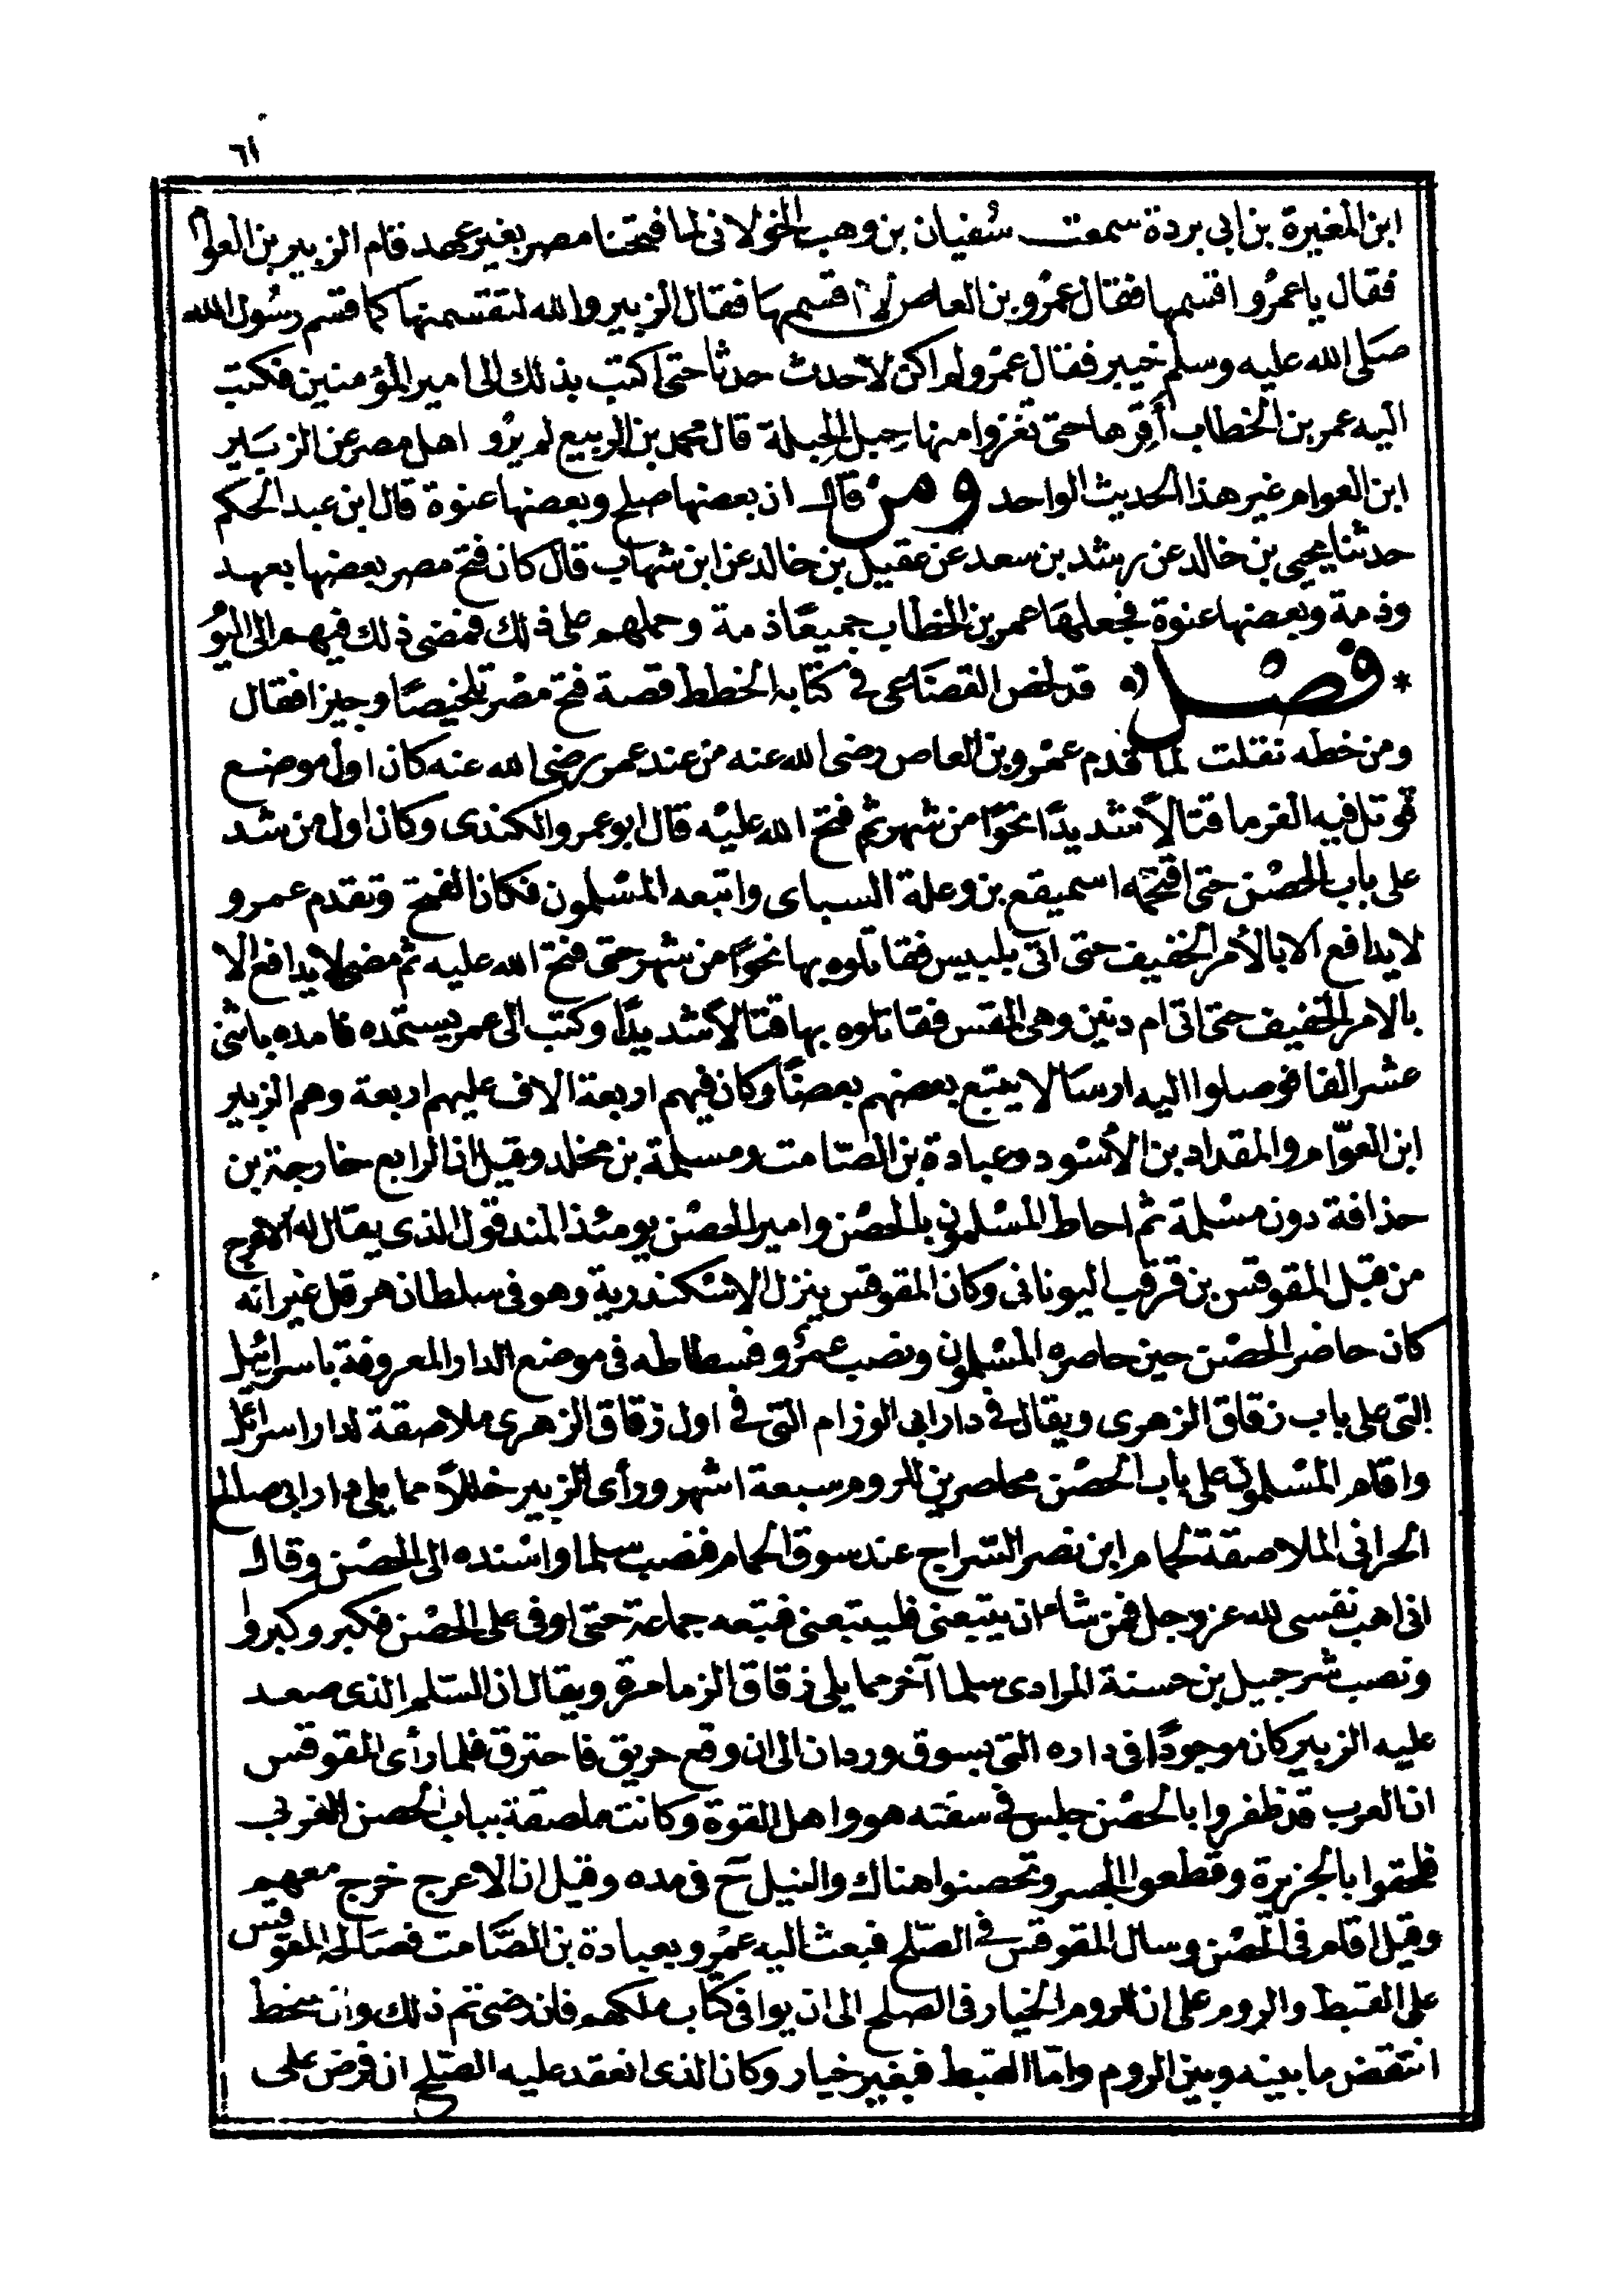 ٦١
ابن المغيرة بن ابي بردة سمعت سُفيان بن وهب الخولانى لما فتحنا مصر بغير عهد قام الزبير بن العوا
فقال يا عمرُو اقسمها فقال عمرُو بن العاص لا اقسمها فقال الزبير والله لتقسمنها كما قسم رسُول الله
صَلى الله عليه وسلم خيبر فقال عمرُو لم اكن لاحدث حدثا حتى اكتب بذلك الى امير المؤمنين فكتب
اليه عمر بن الخطاب أَقِرها حتى تغزوا منها حبل الحبلة قال محمد بن الربيع لم يرُو اهل مصر عن الزبَير
ابن العوام غير هذا الحديث الواحد ومن قال ان بعضها صلح وبعضها عنوة قال ابن عبد الحكم
حدثنا يحيى بن خالد عن رشد بن سعد عن عقيل بن خالد عن ابن شهاب قال كان فتح مصر بعضها بعهد
وذمة وبعضها عنوة فجعلها عمر بن الخطاب جميعًا ذمة وحملهم على ذلك فمضى ذلك فيهم الى اليوُ
* فصْل قد لخص القضَاعى فى كتابه الخطط قصة فتح مصْر تلخيصًا وجيزا فقال
ومن خطه نقلت لما قدم عمْرو بن العاص رضى الله عنه من عند عمر رضى الله عنه كان اول موضع
قوتل فيه الفرما قتالًا شديدًا نحوًا من شهر ثم فتح الله عليْه قال ابو عمرو الكندى وكان اول من شد
على باب الحصْن حتى اقتحمه اسميقع بن وعلة السباى واتبعه المسْلمون فكان الفتح وتقدم عمرو
لا يدافع الا بالأمر الخفيف حتى اتى بلبيس فقاتلوه بها نحوًا من شهر حتى فتح الله عليه ثم مضى لا يدافع الا
بالامر الخفيف حتى اتى ام دنين وهى المقس فقاتلوه بها قتالًا شديدًا وكتب الى عمر يستمده فامده باثنى
عشر الفا فوصلوا اليه ارسَالا يتبع بعضهم بعضًا وكان فيهم اربعة الاف عليهم اربعة وهم الزبير
ابن العوّام والمقداد بن الأسْود وعبادة بن الصّامت ومسلمة بن مخلد وقيل ان الرابع خارجة بن
حذافة دون مسْلمة ثم احاط المسْلمون بالحصْن وامير الحصْن يومئذ المندقول الذى يقال له الاعرج
من قبل المقوقس بن قرقب اليونانى وكان المقوقس ينزل الاسْكندرية وهو فى سلطان هرقل غير انه
كان حاضر الحصْن حين حاصره المسْلمون ونصب عمرُو فسطاطه فى موضع الدار المعروفة باسرائيل
التى على باب زقاق الزهرى ويقال فى دار ابى الوزام التى فى اول زقاق الزهرى ملاصقة لدار اسرائيل
واقام المسْلمون على باب الحصْن محاصرين للروم سبعة اشهر ورأى الزبير خللًا مما يلى دار ابى صالح
الحرانى الملاصقة لحمام ابن نصر السّراج عند سوق الحمام فنصب سلما واسْنده الى الحصْن وقال
انى اهب نفسى لله عز وجل فمن شاء ان يتبعنى فليتبعنى فتبعه جماعة حتى اوفى على الحصْن فكبر وكبروا
ونصب شرحبيل بن حسنة المرادى سلما آخر مما يلى زقاق الزمامرة ويقال ان السّلم الذى صعد
عليه الزبير كان موجودًا فى داره التى بسوق وردان الى ان وقع حريق فاحترق فلما رأى المقوقس
ان العرب قد ظفروا بالحصْن جلس فى سفنه هو واهل القوة وكانت ملصقة بباب الحصن الغربى
فلحقوا بالجزيرة وقطعوا الجسر وتحصنوا هناك والنيل حَ فى مده وقيل ان الاعرج خرج معهم
وقيل اقام فى الحصْن وسال المقوقس فى الصّلح فبعث اليه عمْرو بعبادة بن الصَّامت فصَالحه المقوقس
على القبط والروم على ان للروم الخيار فى الصلح الى ان يوافى كتاب ملكهم فان رضى تم ذلك وان سخط
انتقض ما بينه وبين الروم وامّا القبط فبغير خيار وكان الذى انعقد عليه الصّلح ان فرض على